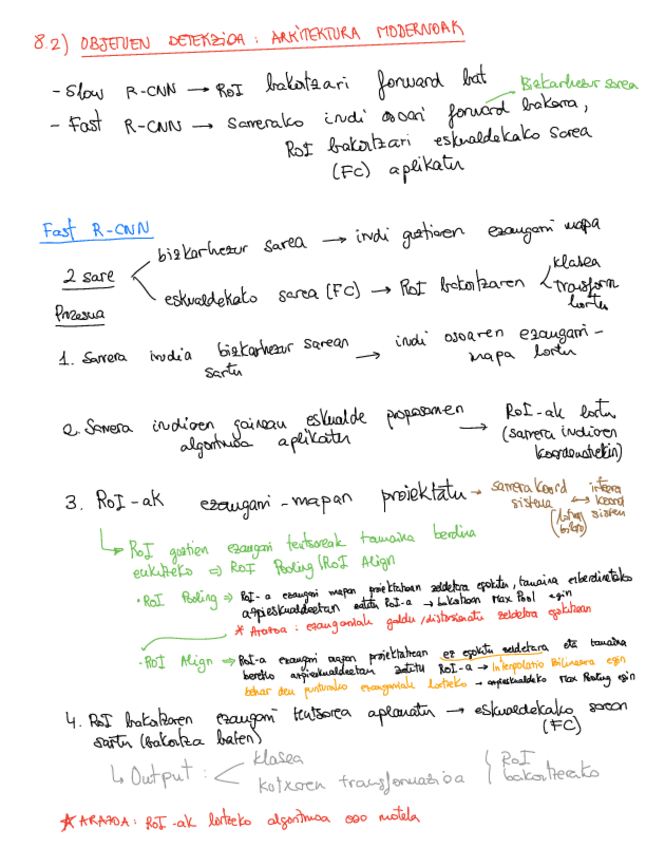 8.2) OBJETUEN DETEKZIOA: ARKITEKTURA MODERNOAK
- Slow R-CNN → RoI bakoitzari forward bat
Bizkarhezur sarea
- Fast R-CNN → Sarrerako irudi osoari forward bakarra,
RoI bakoitzari eskualdekako sarea
(FC) aplikatu
Fast R-CNN
2 sare
bizkarhezur sarea → irudi guztiaren ezaugarri mapa
eskualdekako sarea (FC) → RoI bakoitzaren
klasea
transform
lortu
Prozesua
1. Sarrera irudia bizkarhezur sarean
sartu
→ irudi osoaren ezaugarri-
mapa lortu
2. Sarrera irudiaren gainean eskualde proposamen
algoritmoa aplikatu
→ RoI-ak lortu
(sarrera irudiaren
koordenatuekin)
3. RoI-ak ezaugarri-mapan proiektatu → sarrera koord
sistema ↔
koord
sistem
↳ RoI guztien ezaugarri tentsoreak tamaina berdina
edukitzeko ⇒ RoI Pooling/RoI Align
• RoI Pooling ⇒ RoI-a ezaugarri mapan proiektatzean zeldetara egokitu, tamaina
azpieskualdeetan zatitu RoI-a → bakoitzean Max Pool egin
* Arazoa: ezaugarriak galdu/distortsionatu zeldetara egokitzean
• RoI Align ⇒ RoI-a ezaugarri mapan proiektatzean ez egokitu zeldetara eta tamaina
bereko azpieskualdeetan zatitu RoI-a → Interpolazio Bilineala egin
behar den puntuetako ezaugarriak lortzeko → azpieskualdeko Max Pooling egin
4. RoI bakoitzaren ezaugarri tentsorea aplanatu → eskualdekako sarean
sartu (bakoitza baten) (FC)
↳ Output:
klasea
kutxaren transformazioa
RoI
bakoitzerako
* ARAZOA: RoI-ak lortzeko algoritmoa oso motela